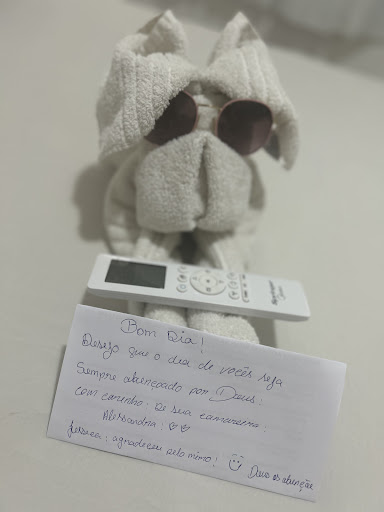 Bom Dia!
Desejo que o dia de vocês seja
Sempre abençoado por Deus!
com carinho: De sua camareira:
Alessandra! ♡♡
agradeceu pelo mimo! ☺ Deus os abençõe